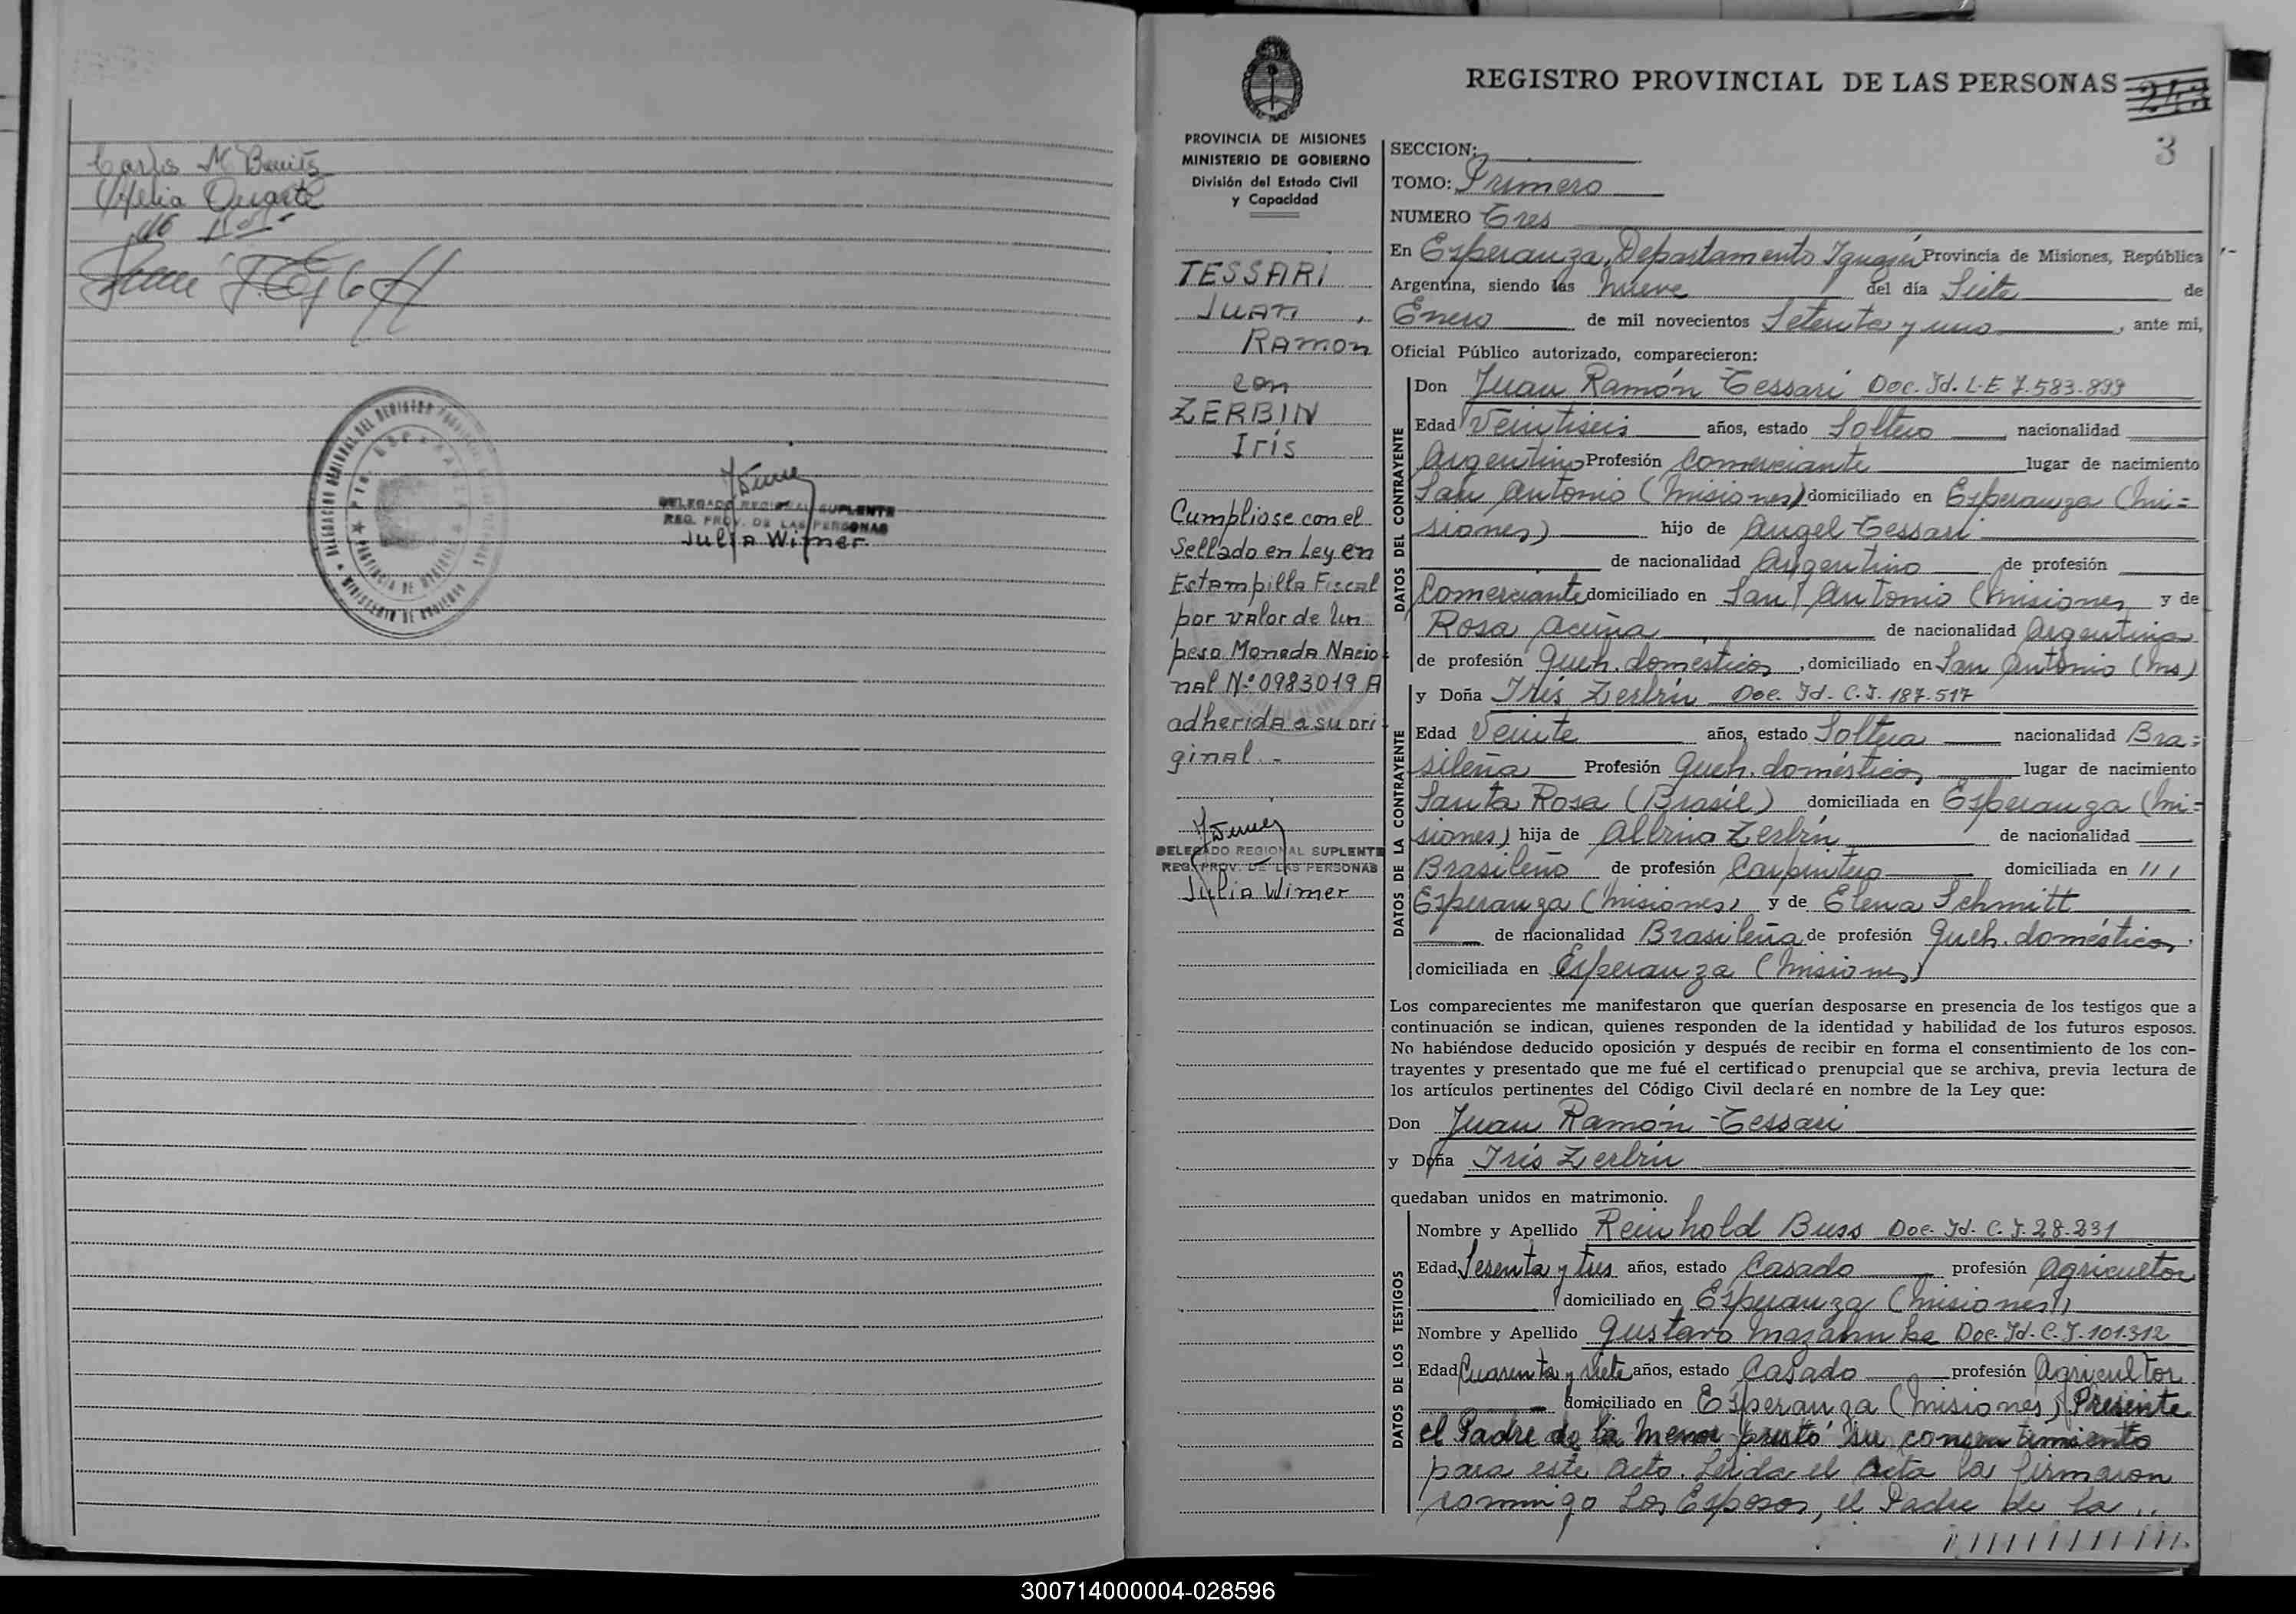 Carlos M Benitz
Ofelia Duarte
de
DELEGADO REGIONAL SUPLENTE
REG. PROV. DE LAS PERSONAS
Julia Wimer
REGISTRO PROVINCIAL DE LAS PERSONAS
3
PROVINCIA DE MISIONES
MINISTERIO DE GOBIERNO
División del Estado Civil
y Capacidad
TESSARI
JUAN
RAMON
con
ZERBIN
Iris
Cumpliose con el
Sellado en Ley en
Estampilla Fiscal
por valor de Un
peso Moneda Nacio-
nal Nº 0983019 A
adherida a su ori-
ginal.-
DELEGADO REGIONAL SUPLENTE
REG. PROV. DE LAS PERSONAS
Julia Wimer
SECCION:
TOMO: Primero
NUMERO Tres
En Esperanza, Departamento Iguazú Provincia de Misiones, República
Argentina, siendo las nueve del día Siete de
Enero de mil novecientos Setenta y uno, ante mi,
Oficial Público autorizado, comparecieron:
DATOS DEL CONTRAYENTE
Don Juan Ramón Tessari Doc. Id. L.E 7.583.899
Edad Veintiseis años, estado Soltero nacionalidad
Argentino Profesión Comerciante lugar de nacimiento
San Antonio (Misiones) domiciliado en Esperanza (Mi=
siones) hijo de Angel Tessari
de nacionalidad Argentino de profesión
Comerciante domiciliado en San Antonio (Misiones y de
Rosa Acuña de nacionalidad Argentina
de profesión Queh. domesticos, domiciliado en San Antonio (Ms)
DATOS DE LA CONTRAYENTE
y Doña Iris Zerbin Doc. Id. C.I. 187.517
Edad Veinte años, estado Soltera nacionalidad Bra=
sileña Profesión Queh. domésticos lugar de nacimiento
Santa Rosa (Brasil) domiciliada en Esperanza (Mi=
siones) hija de Albino Zerbin de nacionalidad
Brasileño de profesión Carpintero domiciliada en ///
Esperanza (Misiones) y de Elena Schmitt
de nacionalidad Brasileña de profesión Queh. domésticos
domiciliada en Esperanza (Misiones)
Los comparecientes me manifestaron que querían desposarse en presencia de los testigos que a
continuación se indican, quienes responden de la identidad y habilidad de los futuros esposos.
No habiéndose deducido oposición y después de recibir en forma el consentimiento de los con-
trayentes y presentado que me fué el certificado prenupcial que se archiva, previa lectura de
los artículos pertinentes del Código Civil declaré en nombre de la Ley que:
Don Juan Ramón Tessari
y Doña Iris Zerbin
quedaban unidos en matrimonio.
DATOS DE LOS TESTIGOS
Nombre y Apellido Reinhold Buss Doc. Id. C.I. 28.231
Edad Sesenta y tres años, estado Casado profesión Agricultor
domiciliado en Esperanza (Misiones)
Nombre y Apellido Gustavo Doc. Id. C.I. 101.312
Edad Cuarenta y siete años, estado Casado profesión Agricultor
domiciliado en Esperanza (Misiones) Presente
el Padre de la menor prestó su consentimiento
para este acto. Leída el Acta la firmaron
conmigo los Esposos, el Padre de la ..
300714000004-028596